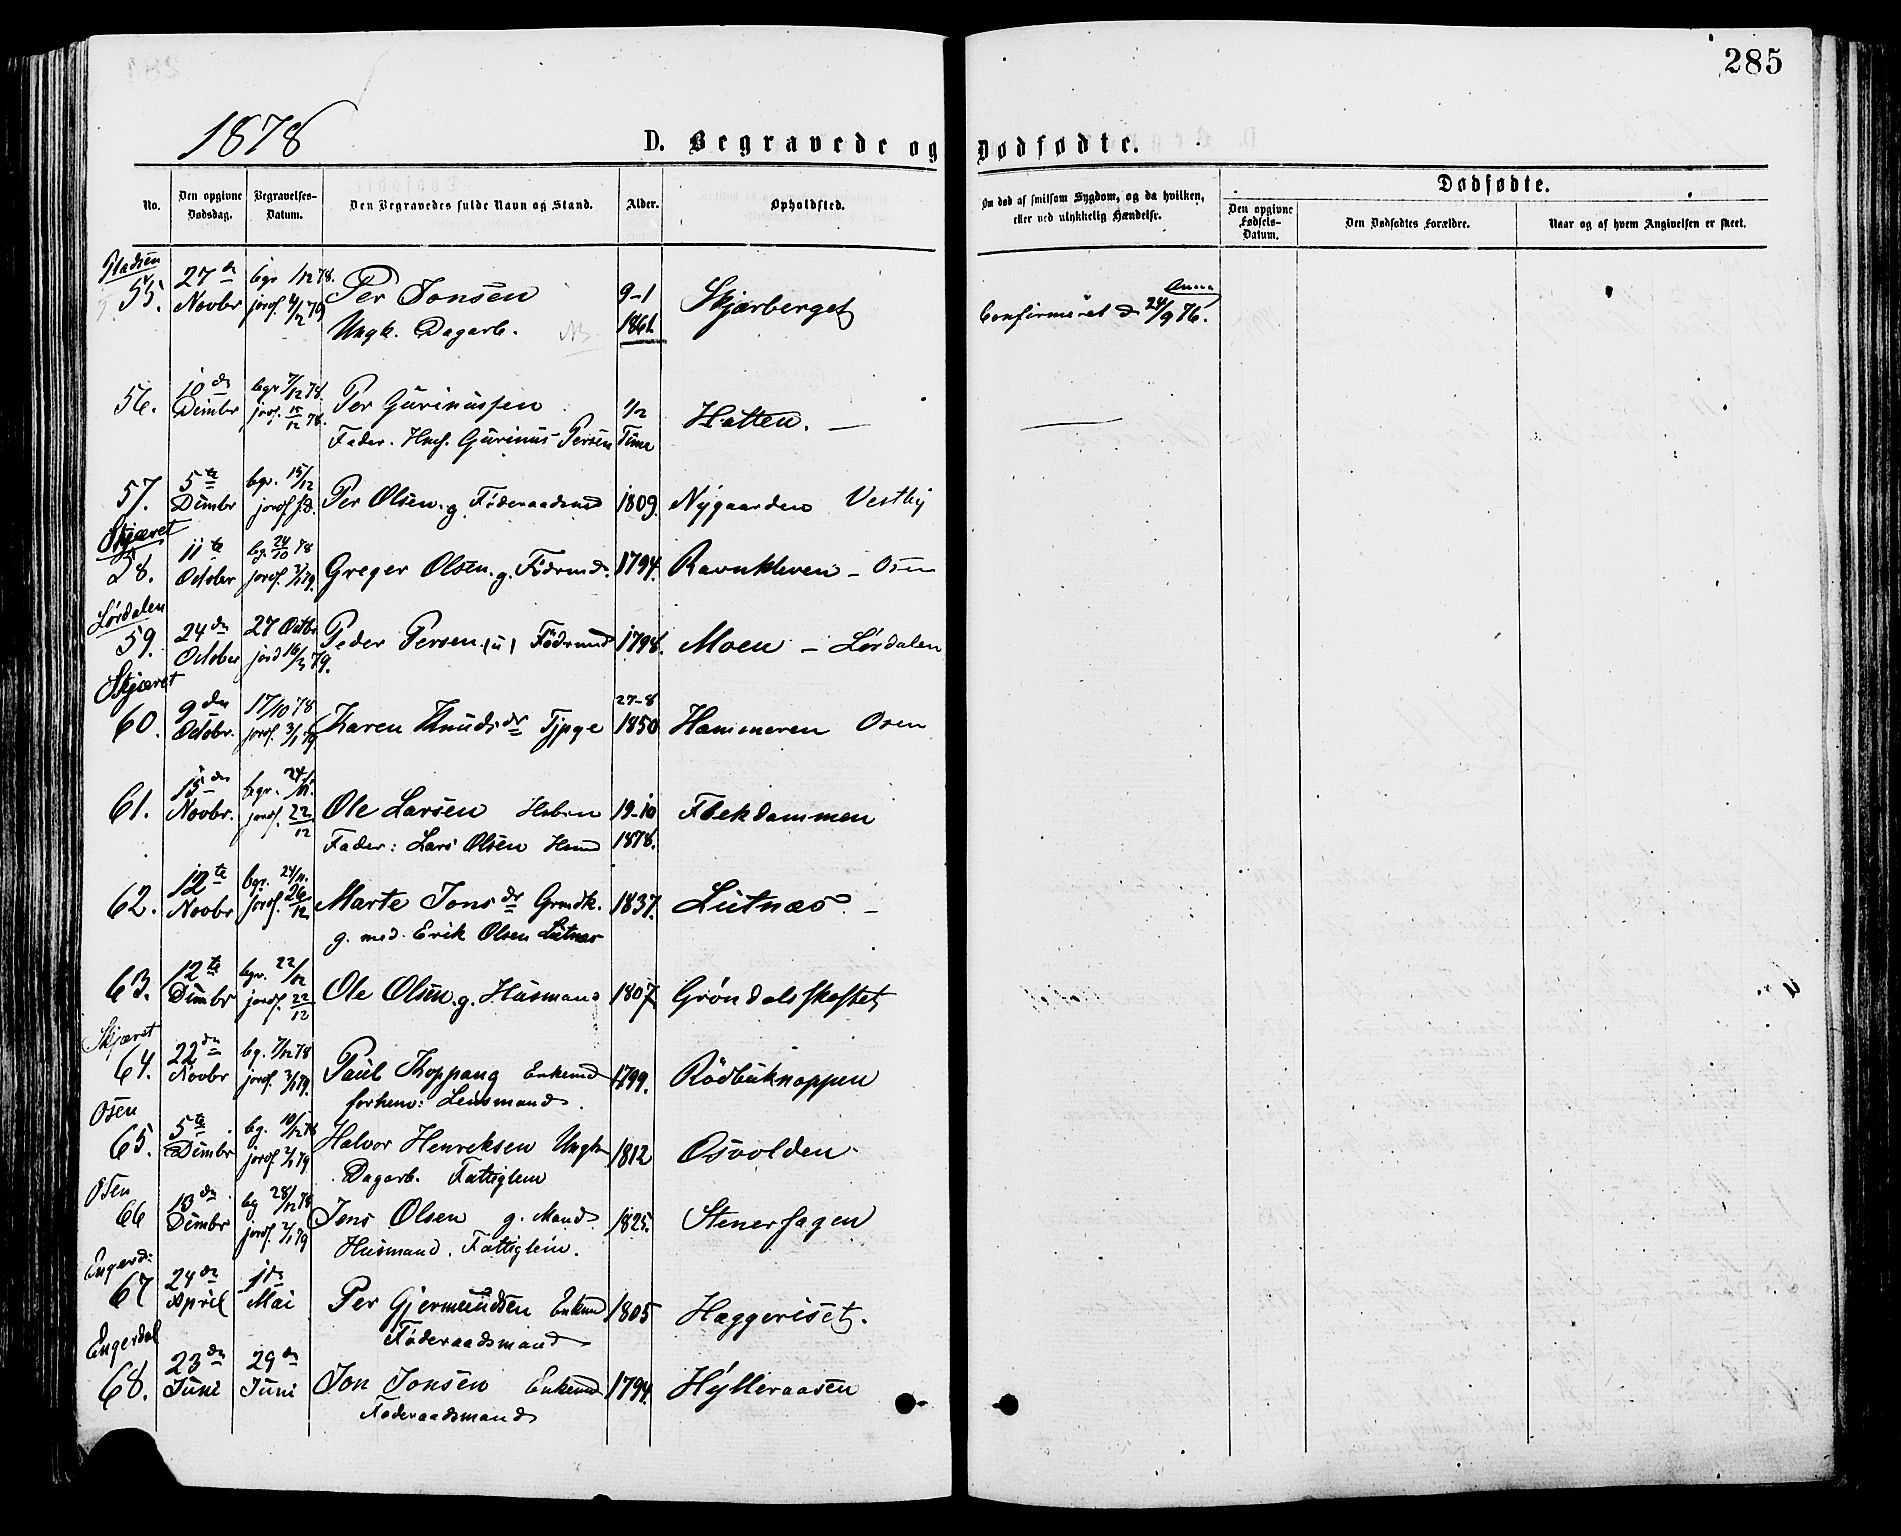 285
1878
D. Begravede og Dødfødte.
No. Den opgivne Dødsdag. Begravelses-Datum. Den Begravedes fulde Navn og Stand. Alder. Opholdsted. Om død af smitsom Sygdom, og da hvilken, eller ved ulykkelig Hændelse. Dødfødte.
Den opgivne Fødsels-Datum. Den Dødfødtes Forældre. Naar og af hvem Angivelsen er skeet.
55. 27de Novbr begr 1/12 78. Per Jonsen 9-1 1861. Skjærberget Confirmeret d 24/9 76.
Ungk. Dagarb.
56. 10de Dcmbr begr 7/12 78. jordf. 15/12 78. Per Gurinussen 1/2 Time Hatten. —
Fader. Hmf. Gurinus Persen
57. 5te Dcmbr begr. 15/12 jordf. s.d. Per Olsen. g. Föderaadsmd 1809. Nygaarden Vestby
Skjæret
58. 11te October bg. 24/10 78 jordf. 3/1 79. Greger Olsen. g. Födrmd. 1794. Ravnkleven — Osen
Lørdalen
59. 24de October 27 Octbr jord 16/3 79. Peder Persen (u) Födrmd 1798. Moen — Lørdalen
Skjæret
60. 9den Octobr. 17/10 78 jordf. 3/1 79 Karen Knudsdr Tjpge 27-8 1850 Hammeren Osen
61. 15de Novbr. begr. 24/11. jordf. 22/12 Ole Larsen Hsbrn 19-10 1878. Flekdammen
Fader: Lars Olsen Hsmd
62. 12te Novbr begr. 24/11. jordf. 26/12 Marte Jonsdr Grmdk. 1837. Lutnæs. —
g. med. Erik Olsen Lutnæs
63. 12te Dcmbr begr. 22/12 jordf. 22/12 Ole Olsen. g. Husmand 1807 Grøndalsskaftet
Skjæret
64. 22de Novbr bg. 7/12 78 jordf. 3/1 79. Paul Koppang Enkemd 1799. Rödbuknappen
forhenv: Lensmand.
Osen
65. 5te Dcmbr bg. 10/12 78 jordf 2/1 79 Halvor Henriksen Ungk 1812 Osvolden
Dagarb. Fattiglem
Osen
66 13de Dcmbr bg 28/12 78 jordf. 2/1 79 Jens Olsen g. Mand 1825. Stenersagen
Husmand. Fattiglem.
Engerd:
67 24de April 1de Mai Per Gjermundsen Enkemd 1805 Haggeriset.
Föderaadsmand
Engerdal
68. 23de Juni 29de Juni Jon Jonsen Enkemd 1794. Hylleraasen
Föderaadsmand